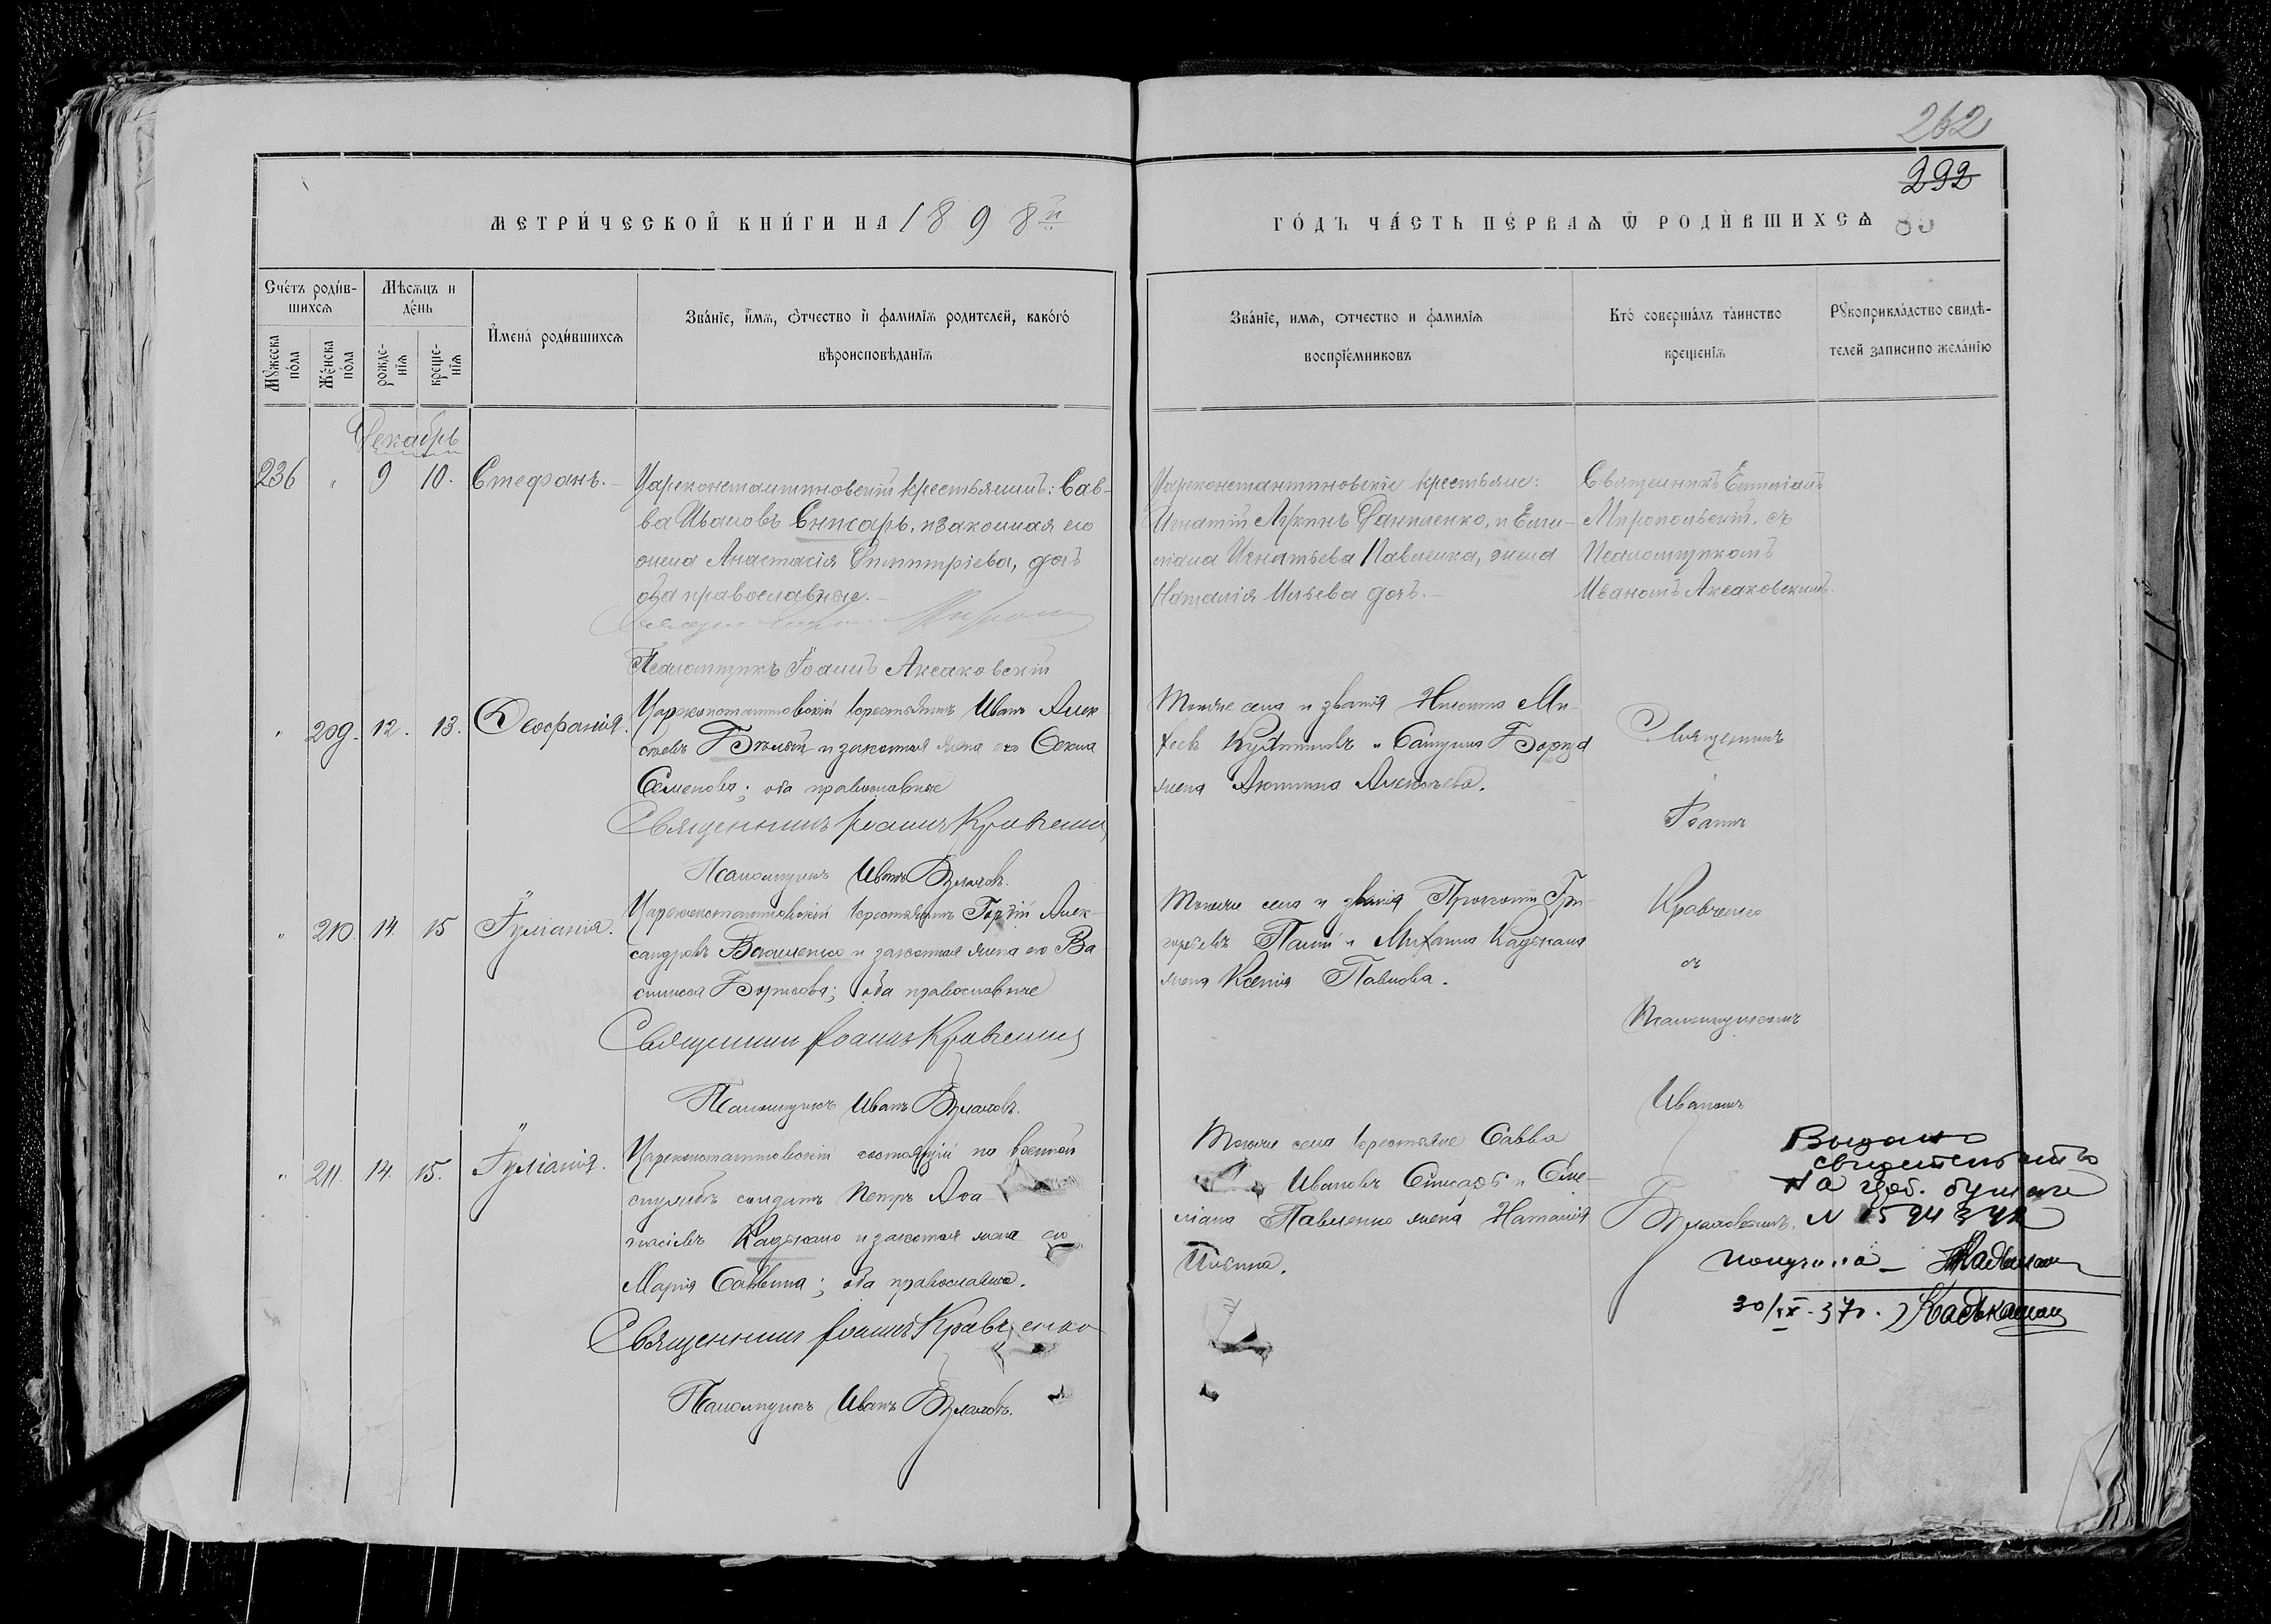 262
292
МЕТРИ́ЧЕСКОЙ КНИ́ГИ НА 1898й
ГО́ДЪ ЧА́СТЬ ПЕ́РВАѦ Ѿ РОДИ́ВШИХСѦ
Сче́тъ роди́в-
шихсѧ
Мѣсѧцъ и
де́нь
Мꙋжеска
по́ла
Же́нска
по́ла
рожде-
нїѧ
креще-
нїѧ
И́мена̀ роди́вшихсѧ
Зва́нїе, и́мѧ, ѻ́тчество и҆ фамилїѧ родителей, како́гѡ
вѣроисповѣданїѧ
Зва́нїе, имѧ, ѻтчество и фамилїѧ
воспрїе́мниковъ
Кто̀ соверша́лъ та̀инство
крещенїѧ
Рꙋкоприкла́дство свидѣ-
телей записи по жела́нїю
Декабрь
236 " 9 10. Стефанъ.
Цареконстантиновскій крестьянинъ: Сав-
ва Ивановъ Снисарь, и законная его
жена Анастасія Димитріева, дочь
оба православные.
Псаломщикъ Іоаннъ Аксаковскій
Цареконстантиновскіе крестьяне:
Игнатій Даниленко, и Еми-
ліана Игнатьева Павленка, жена
Наталія Ильева дочь.
Священникъ Емиліанъ
Миропольскій, съ
Псаломщикомъ
Иваномъ Аксаковскимъ.
" 209. 12. 13. Ѳеофанія.
Цареконстантиновскій крестьянинъ Иванъ Алек
сѣевъ Бѣлый и законная жена его Ѳекла
Семенова; оба православные
Священникъ Іоаннъ Кравченко
Псаломщикъ Иванъ
Тогоже села и званія Никита Ми-
хеевъ и Борща
жена Алексѣева.
Священникъ
Іоаннъ
Кравченко
съ
Псаломщикомъ
Иваномъ
" 210. 14. 15 Іуліанія.
Цареконстантиновскій крестьянинъ Гордій Алек-
сандровъ и законная жена его Ва
силиса Борисова; оба православные
Священникъ Іоаннъ Кравченко
Псаломщикъ Иванъ
Тогоже села и званія Прокопій Гри-
горьевъ и Михаила Кадькала
жена Ксенія Павлова.
" 211. 14. 15. Іуліанія.
Цареконстантиновскій состоящій на военной
службѣ солдатъ Петръ Аѳа
насіевъ Кадькало и законная жена его
Марія Саввина; оба православные.
Священникъ Іоаннъ Кравченко
Псаломщикъ Иванъ
Тогоже села крестьяне Савва
Ивановъ Снисарь и Еми-
ліана Павленко жена Наталія
Ильина.
Выдано
свидетельство
на бумаге
N
получила
30/IX-37г.